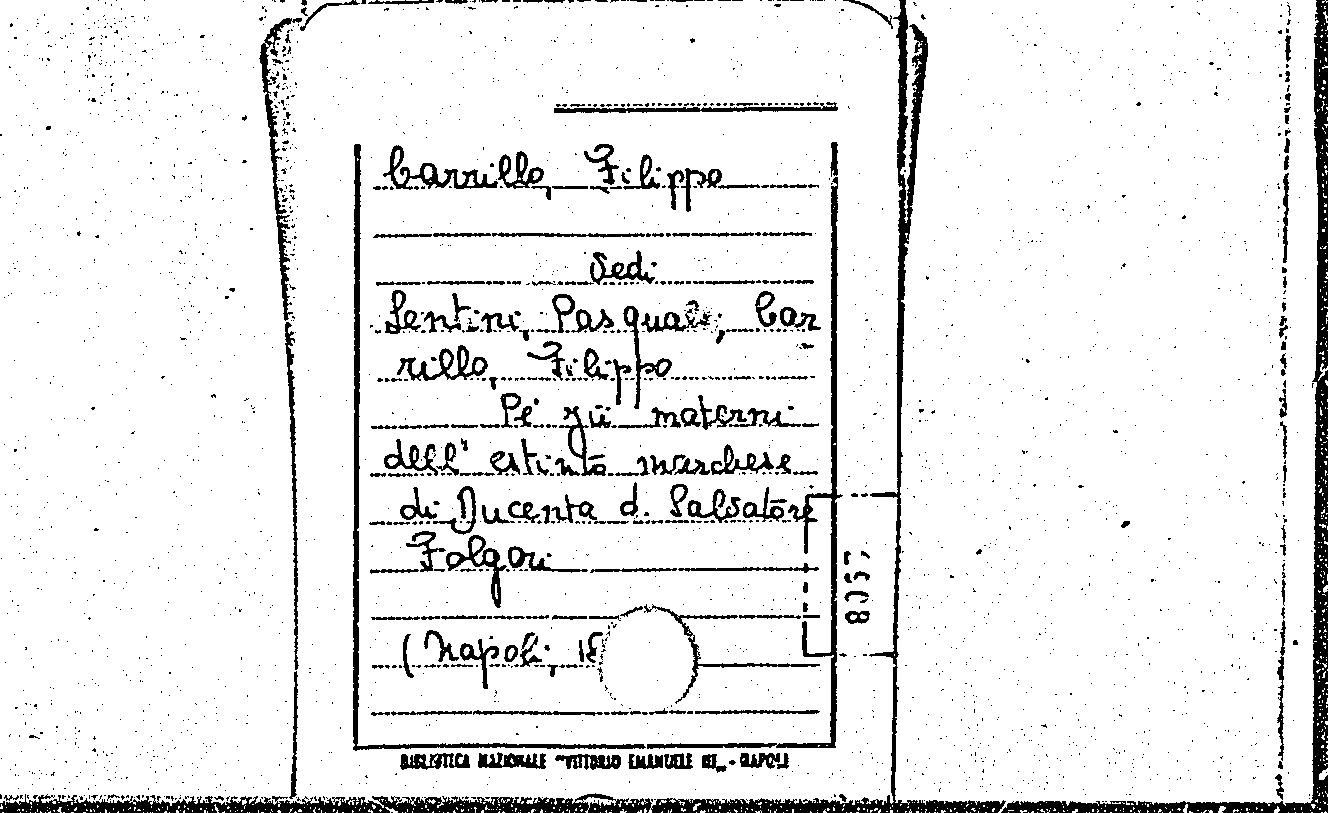 Carrillo, Filippo
Vedi
Lentini, Pasquale; Car
rillo, Filippo
Pe' zii materni
dell' estinto marchese
di Ducenta d. Salvatore
Folgori
(Napoli, 18
BIBLIOTECA NAZIONALE "VITTORIO EMANUELE III" - NAPOLI